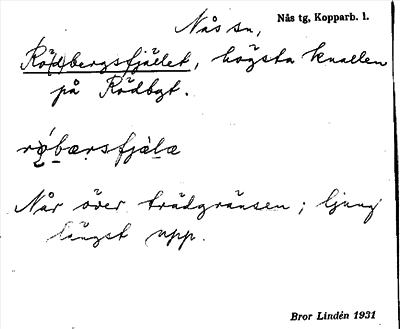 Nås sn,
Nås tg, Kopparb. l.
Rö(d)bergsfjället, högsta knallen
på Rödbgt.
Når över trädgränsen; ljung
längst upp.
Bror Lindén 1931